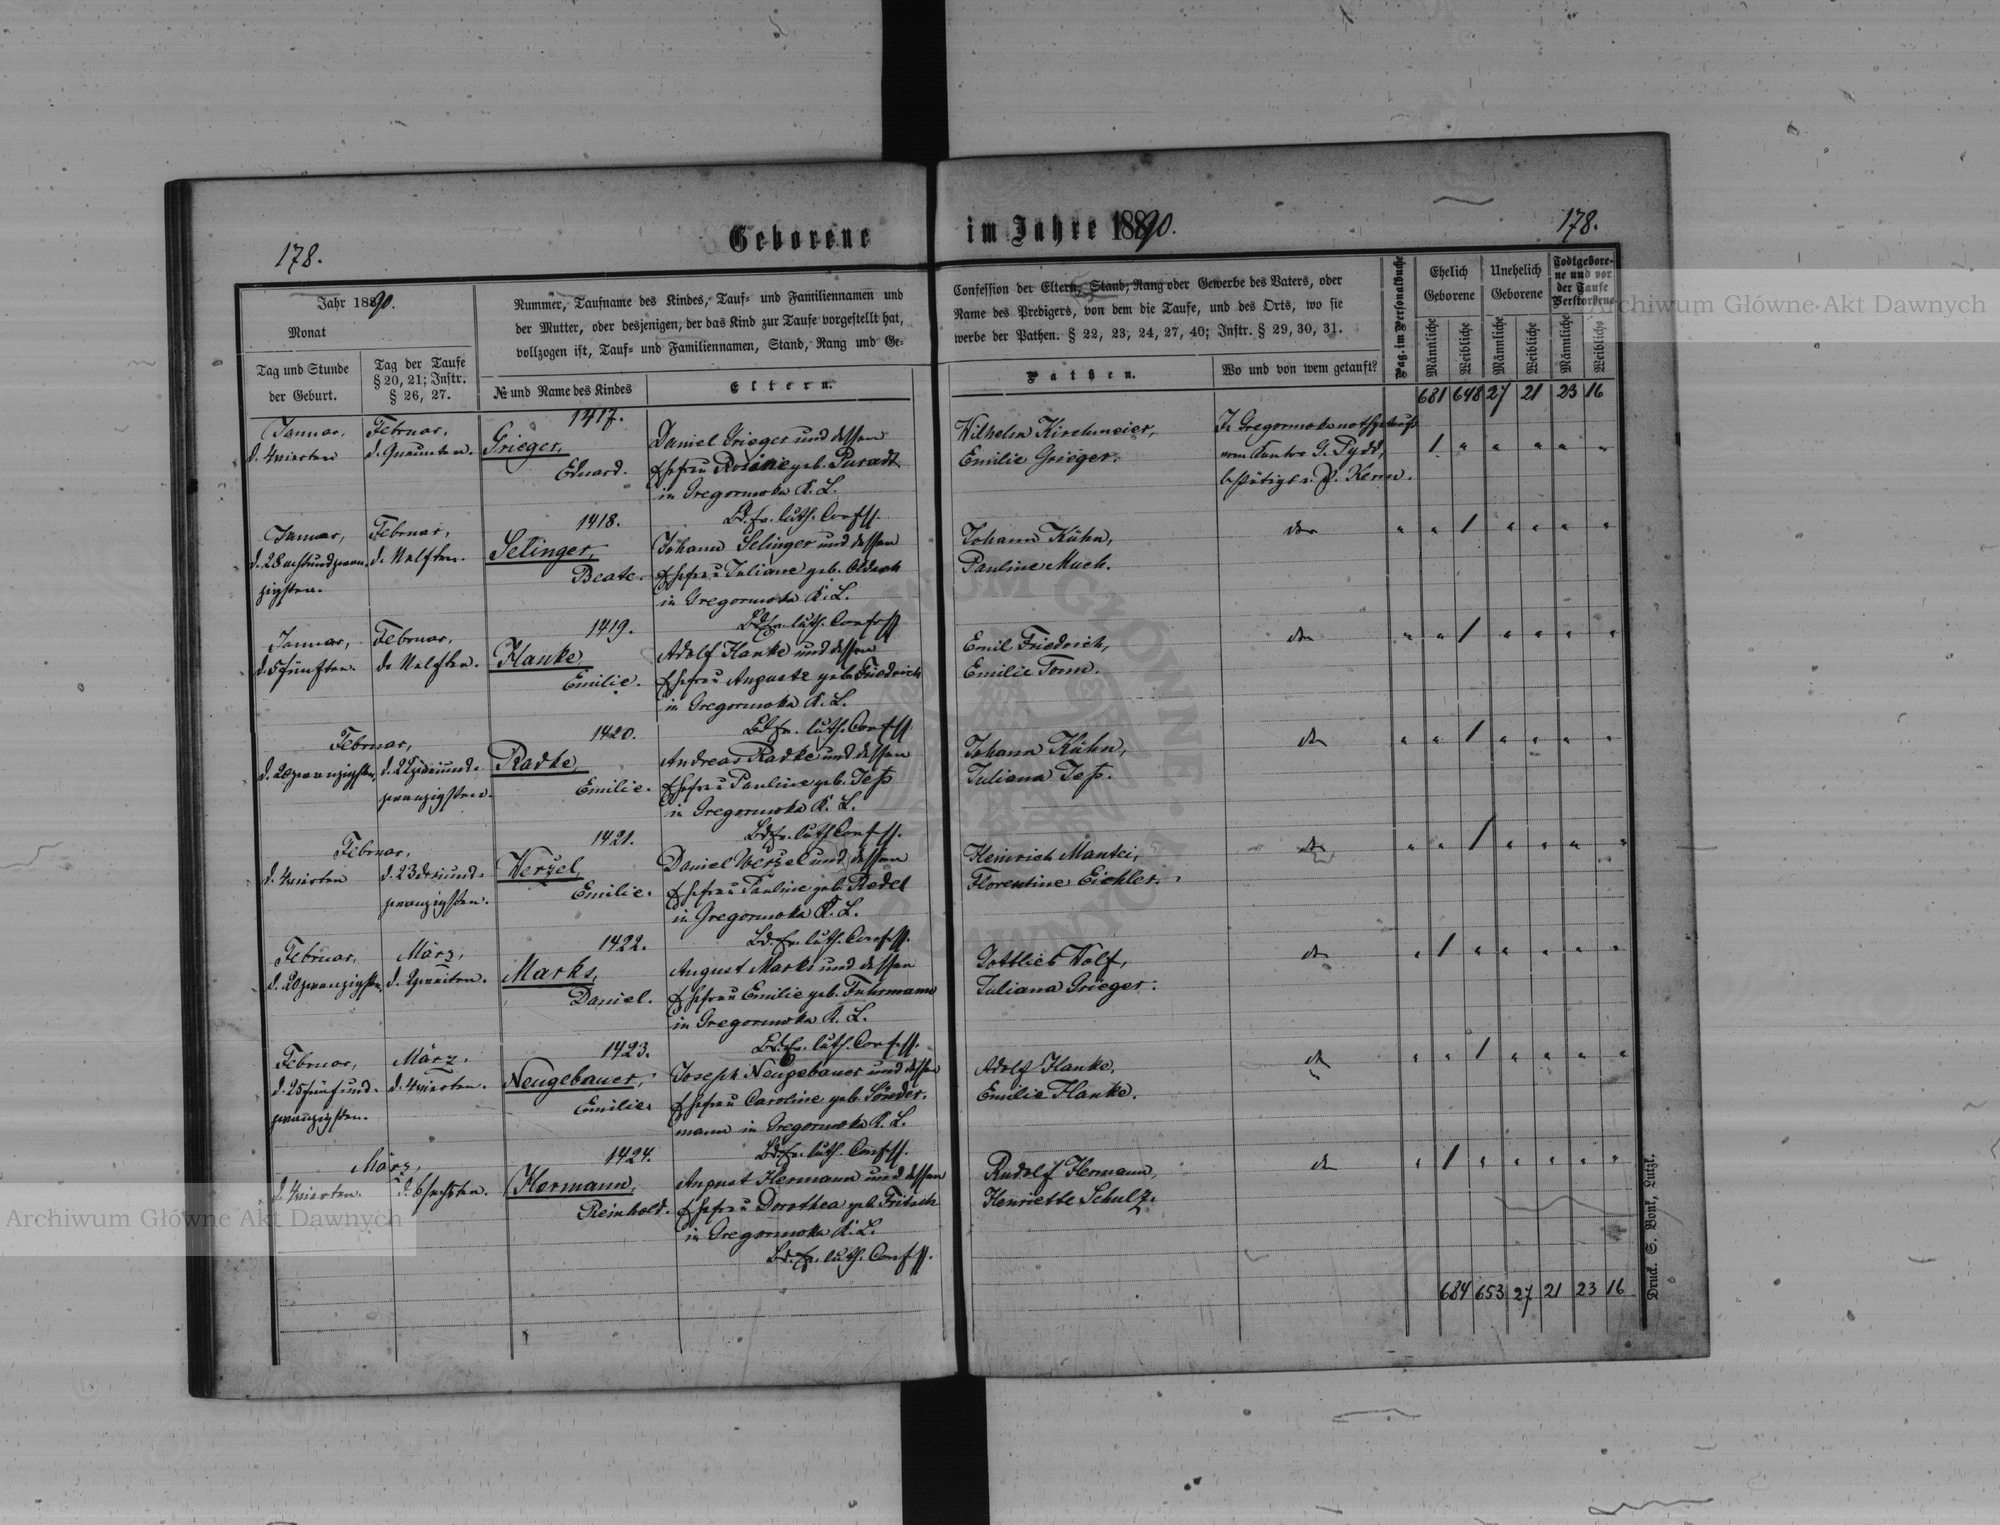 178.
Geborene
im Jahre 1890.
178.
Jahr 1890.
Monat
Tag und Stunde
der Geburt.
Tag der Taufe
§ 20, 21; Instr.
§ 26, 27.
Nummer, Taufname des Kindes, Tauf- und Familiennamen und
der Mutter, oder desjenigen, der das Kind zur Taufe vorgestellt hat,
vollzogen ist, Tauf- und Familiennamen, Stand, Rang und Ge-
№ und Name des Kindes
Eltern.
Confession der Eltern, Stand, Rang oder Gewerbe des Vaters, oder
Name des Predigers, von dem die Taufe, und des Orts, wo sie
werbe der Pathen. § 22, 23, 24, 27, 40; Instr. § 29, 30, 31.
Pathen.
Wo und von wem getauft?
Pag. im Personalbuche
Ehelich
Geborene
Unehelich
Geborene
Todtgebore-
ne und vor
der Taufe
Verstorbene
Männliche
Weibliche
Männliche
Weibliche
Männliche
Weibliche
681 648 27 21 23 16
Januar,
d. 4 vierten
Februar,
d. 9 neunten.
1417.
Grieger,
Eduard.
Daniel Grieger und dessen
Ehefrau Rosine geb. Puradt
in Gregorowka K. L.
Bd. Ev. luth. Confess.
Wilhelm Kirchmeier,
Emilie Grieger.
In Gregorowka nothgetauft
vom Kantor G. Pydd,
bestätigt v. P. Kern.
1 " " " " "
Januar,
d. 28 achtundzwan-
zigsten.
Februar,
d. 11 elften.
1418.
Selinger,
Beate.
Johann Selinger und dessen
Ehefrau Juliane geb.
in Gregorowka K. L.
Bd. Ev. luth. Confess.
Johann Kühn,
Pauline Much.
dto
" " 1 " " " "
Januar,
d. 5 fünften.
Februar,
d. 11 elften.
1419.
Hanke,
Emilie.
Adolf Hanke und dessen
Ehefrau Auguste geb. Friedrich
in Gregorowka K. L.
Bd. Ev. luth. Confess.
Emil Friedrich,
Emilie Tonn.
dto
" " 1 " " " "
Februar,
d. 20 zwanzigsten,
d. 22 zweiund-
zwanzigsten.
1420.
Radke,
Emilie.
Andreas Radke und dessen
Ehefrau Pauline geb. Jeß
in Gregorowka K. L.
Bd. Ev. luth. Confess.
Johann Kühn,
Juliana Jeß.
dto
" " 1 " " " "
Februar,
d. 4 vierten
d. 23 dreiund-
zwanzigsten.
1421.
Wenzel,
Emilie.
Daniel Wenzel und dessen
Ehefrau Pauline geb. Redel
in Gregorowka K. L.
Bd. Ev. luth. Confess.
Heinrich Mantei,
Florentine Eichler.
dto
" " 1 " " " "
Februar,
d. 20 zwanzigsten,
März,
d. 2 zweiten.
1422.
Marks,
Daniel.
August Marks und dessen
Ehefrau Emilie geb. Fuhrmann
in Gregorowka K. L.
Bd. Ev. luth. Confess.
Gottlieb Wolf,
Juliana Grieger.
dto
" 1 " " " " "
Februar,
d. 25 fünfund-
zwanzigsten.
März,
d. 4 vierten.
1423.
Neugebauer,
Emilie.
Joseph Neugebauer und dessen
Ehefrau Caroline geb. Sönder-
mann in Gregorowka K. L.
Bd. Ev. luth. Confess.
Adolf Hanke,
Emilie Hanke.
dto
" " 1 " " " "
März,
d. 4 vierten.
d. 6 sechsten.
1424.
Hermann,
Reinhold.
August Hermann und dessen
Ehefrau Dorothea geb. Fritsch
in Gregorowka K. L.
Bd. Ev. luth. Confess.
Rudolf Hermann,
Henriette Schulz.
dto
" 1 " " " " "
684 653 27 21 23 16
Druck. S. Bonk, Lutzk.
Archiwum Główne Akt Dawnych
Archiwum Główne Akt Dawnych